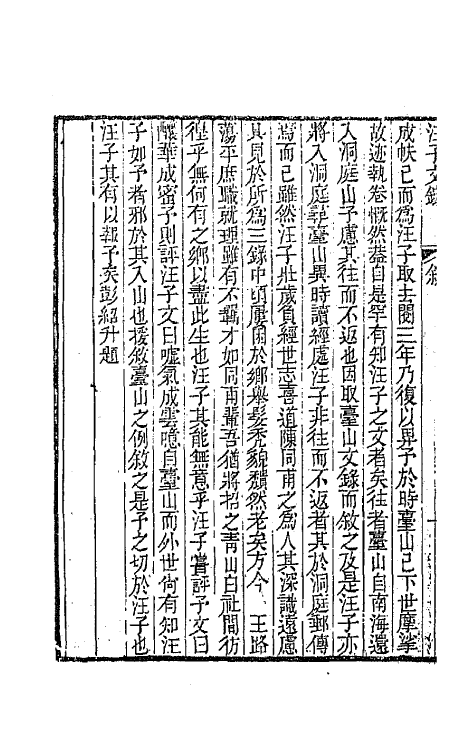 汪子文錄　敘
成帙已而爲汪子取去閱三年乃復以畀予於時臺山已下世摩挲
故迹執卷慨然葢自是罕有知汪子之文者矣往者臺山自南海還
入洞庭山予慮其往而不返也因取臺山文錄而敘之及是汪子亦
將入洞庭尋臺山異時讀經處汪子非往而不返者其於洞庭郵傳
焉而已雖然汪子壯歲負經世志喜道陳同甫之爲人其深識遠慮
具見於所爲三錄中頃屢困於鄉舉髮禿貌顇然老矣方今　王路
蕩平庶職就理雖有不羈才如同甫輩吾猶將招之靑山白社閒彷
徨乎無何有之鄉以盡此生也汪子其能無意乎汪子嘗評予文曰
釀華成蜜予則評汪子文曰噓氣成雲噫自臺山而外世尚有知汪
子如予者邪於其入山也援敘臺山之例敘之是予之切於汪子也
汪子其有以報予矣彭紹升題